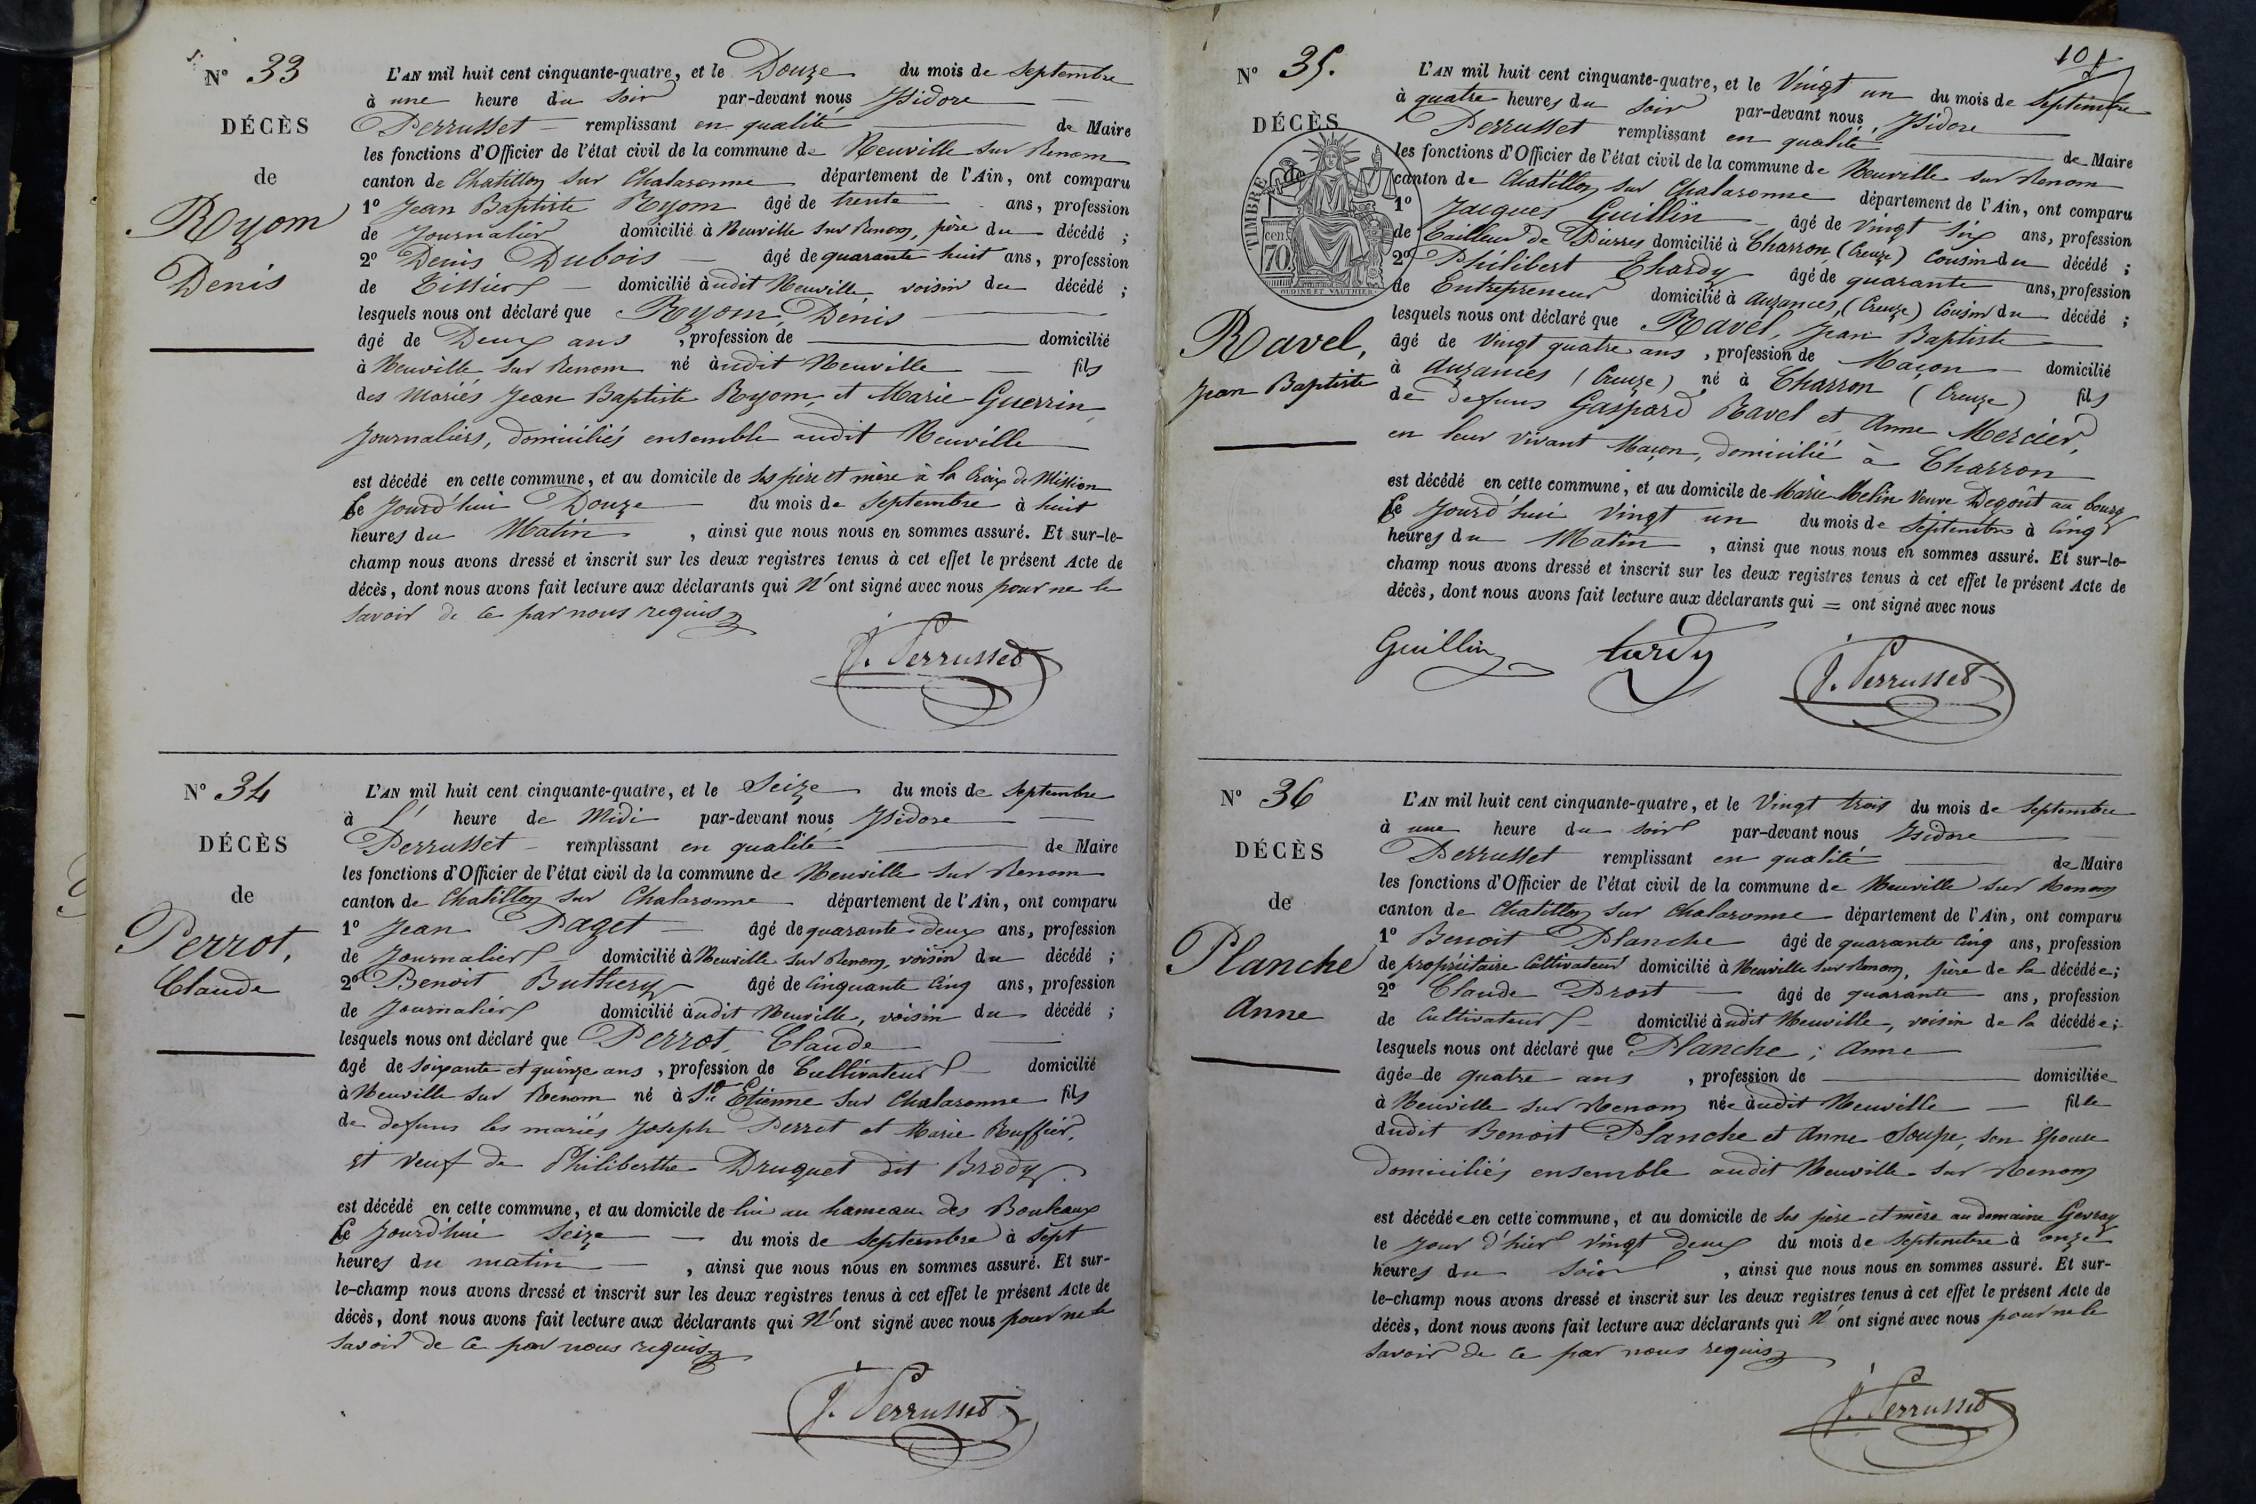 N° 33
DÉCÈS
de
Ryom
Denis
L'AN mil huit cent cinquante-quatre, et le Douze du mois de Septembre
à une heure du soir par-devant nous Isidore
Perrusset remplissant en qualité de Maire
les fonctions d'Officier de l'état civil de la commune de Neuville sur Renom
canton de Chatillon sur Chalaronne département de l'Ain, ont comparu
1° Jean Baptiste Ryom âgé de trente ans, profession
de Journalier domicilié à Neuville sur Renom, père du décédé ;
2° Denis Dubois âgé de quarante huit ans, profession
de Tissier domicilié audit Neuville, voisin du décédé ;
lesquels nous ont déclaré que Ryom, Denis
âgé de Deux ans , profession de domicilié
à Neuville sur Renom né audit Neuville fils
des Mariés Jean Baptiste Ryom, et Marie Guerrin,
Journaliers, domiciliés ensemble audit Neuville
est décédé en cette commune, et au domicile de ses père et mère à la Croix de Mission
Ce Jourd'hui Douze du mois de Septembre à huit
heures du Matin , ainsi que nous nous en sommes assuré. Et sur-le-
champ nous avons dressé et inscrit sur les deux registres tenus à cet effet le présent Acte de
décès, dont nous avons fait lecture aux déclarants qui N'ont signé avec nous pour ne le
savoir de ce par nous requis
J. Perrusset
N° 34
DÉCÈS
de
Perrot,
Claude
L'AN mil huit cent cinquante-quatre, et le Seize du mois de Septembre
à l' heure de Midi par-devant nous Isidore
Perrusset remplissant en qualité de Maire
les fonctions d'Officier de l'état civil de la commune de Neuville sur Renom
canton de Chatillon sur Chalaronne département de l'Ain, ont comparu
1° Jean Paget âgé de quarante deux ans, profession
de Journalier domicilié à Neuville sur Renom, voisin du décédé ;
2° Benoit Buthery âgé de Cinquante Cinq ans, profession
de Journalier domicilié audit Neuville, voisin du décédé ;
lesquels nous ont déclaré que Perrot, Claude
âgé de soixante et quinze ans , profession de Cultivateur domicilié
à Neuville sur Renom né à St Etienne sur Chalaronne fils
de defuns les mariés Joseph Perret et Marie Ruffier,
et Veuf de Philiberthe Druguet dit Brody.
est décédé en cette commune, et au domicile de lui au hameau des Bouleaux
Ce Jourd'hui Seize du mois de Septembre à Sept
heures du matin , ainsi que nous nous en sommes assuré. Et sur-
le-champ nous avons dressé et inscrit sur les deux registres tenus à cet effet le présent Acte de
décès, dont nous avons fait lecture aux déclarants qui N'ont signé avec nous pour ne le
savoir de ce par nous requis
J. Perrusset
101
N° 35.
DÉCÈS
de
TIMBRE
cen. 70
OUDINÉ ET VAUTHIER
Ravel,
Jean Baptiste
L'AN mil huit cent cinquante-quatre, et le Vingt un du mois de Septembre
à quatre heures du soir par-devant nous Isidore
Perrusset remplissant en qualité de Maire
les fonctions d'Officier de l'état civil de la commune de Neuville sur Renom
canton de Chatillon sur Chalaronne département de l'Ain, ont comparu
1° Jacques Guillin âgé de Vingt six ans, profession
de Tailleur de Pierres domicilié à Charron (Creuze) Cousin du décédé ;
2° Philibert Thardy âgé de quarante ans, profession
de Entrepreneur domicilié à Auzances, (Creuze) Cousin du décédé ;
lesquels nous ont déclaré que Ravel, Jean Baptiste
âgé de Vingt quatre ans , profession de Maçon domicilié
à Auzances (Creuze) né à Charron (Creuze) fils
de defuns Gaspard Ravel et Anne Mercier,
en leur vivant Maçon, domicilié à Charron
est décédé en cette commune, et au domicile de Marie Melin Veuve Degoût au bourg
Ce Jourd'hui Vingt un du mois de Septembre à Cinq
heures du Matin , ainsi que nous nous en sommes assuré. Et sur-le-
champ nous avons dressé et inscrit sur les deux registres tenus à cet effet le présent Acte de
décès, dont nous avons fait lecture aux déclarants qui = ont signé avec nous
Guillin tardy J. Perrusset
N° 36
DÉCÈS
de
Planche
Anne
L'AN mil huit cent cinquante-quatre, et le Vingt trois du mois de Septembre
à une heure du soir par-devant nous Isidore
Perrusset remplissant en qualité de Maire
les fonctions d'Officier de l'état civil de la commune de Neuville sur Renom
canton de Chatillon sur Chalaronne département de l'Ain, ont comparu
1° Benoit Planche âgé de quarante Cinq ans, profession
de propriétaire Cultivateur domicilié à Neuville sur Renom, père de la décédée ;
2° Claude Prost âgé de quarante ans, profession
de Cultivateur domicilié audit Neuville, voisin de la décédée ;
lesquels nous ont déclaré que Planche, Anne
âgée de quatre ans , profession de domiciliée
à Neuville sur Renom née audit Neuville fille
dudit Benoit Planche et Anne Soupe, son Epouse
domiciliés ensemble audit Neuville sur Renom
est décédée en cette commune, et au domicile de ses père et mère au domaine Gevray
le jour d'hier Vingt deux du mois de Septembre à onze
heures du soir , ainsi que nous nous en sommes assuré. Et sur-
le-champ nous avons dressé et inscrit sur les deux registres tenus à cet effet le présent Acte de
décès, dont nous avons fait lecture aux déclarants qui N'ont signé avec nous pour ne le
savoir de ce par nous requis
J. Perrusset